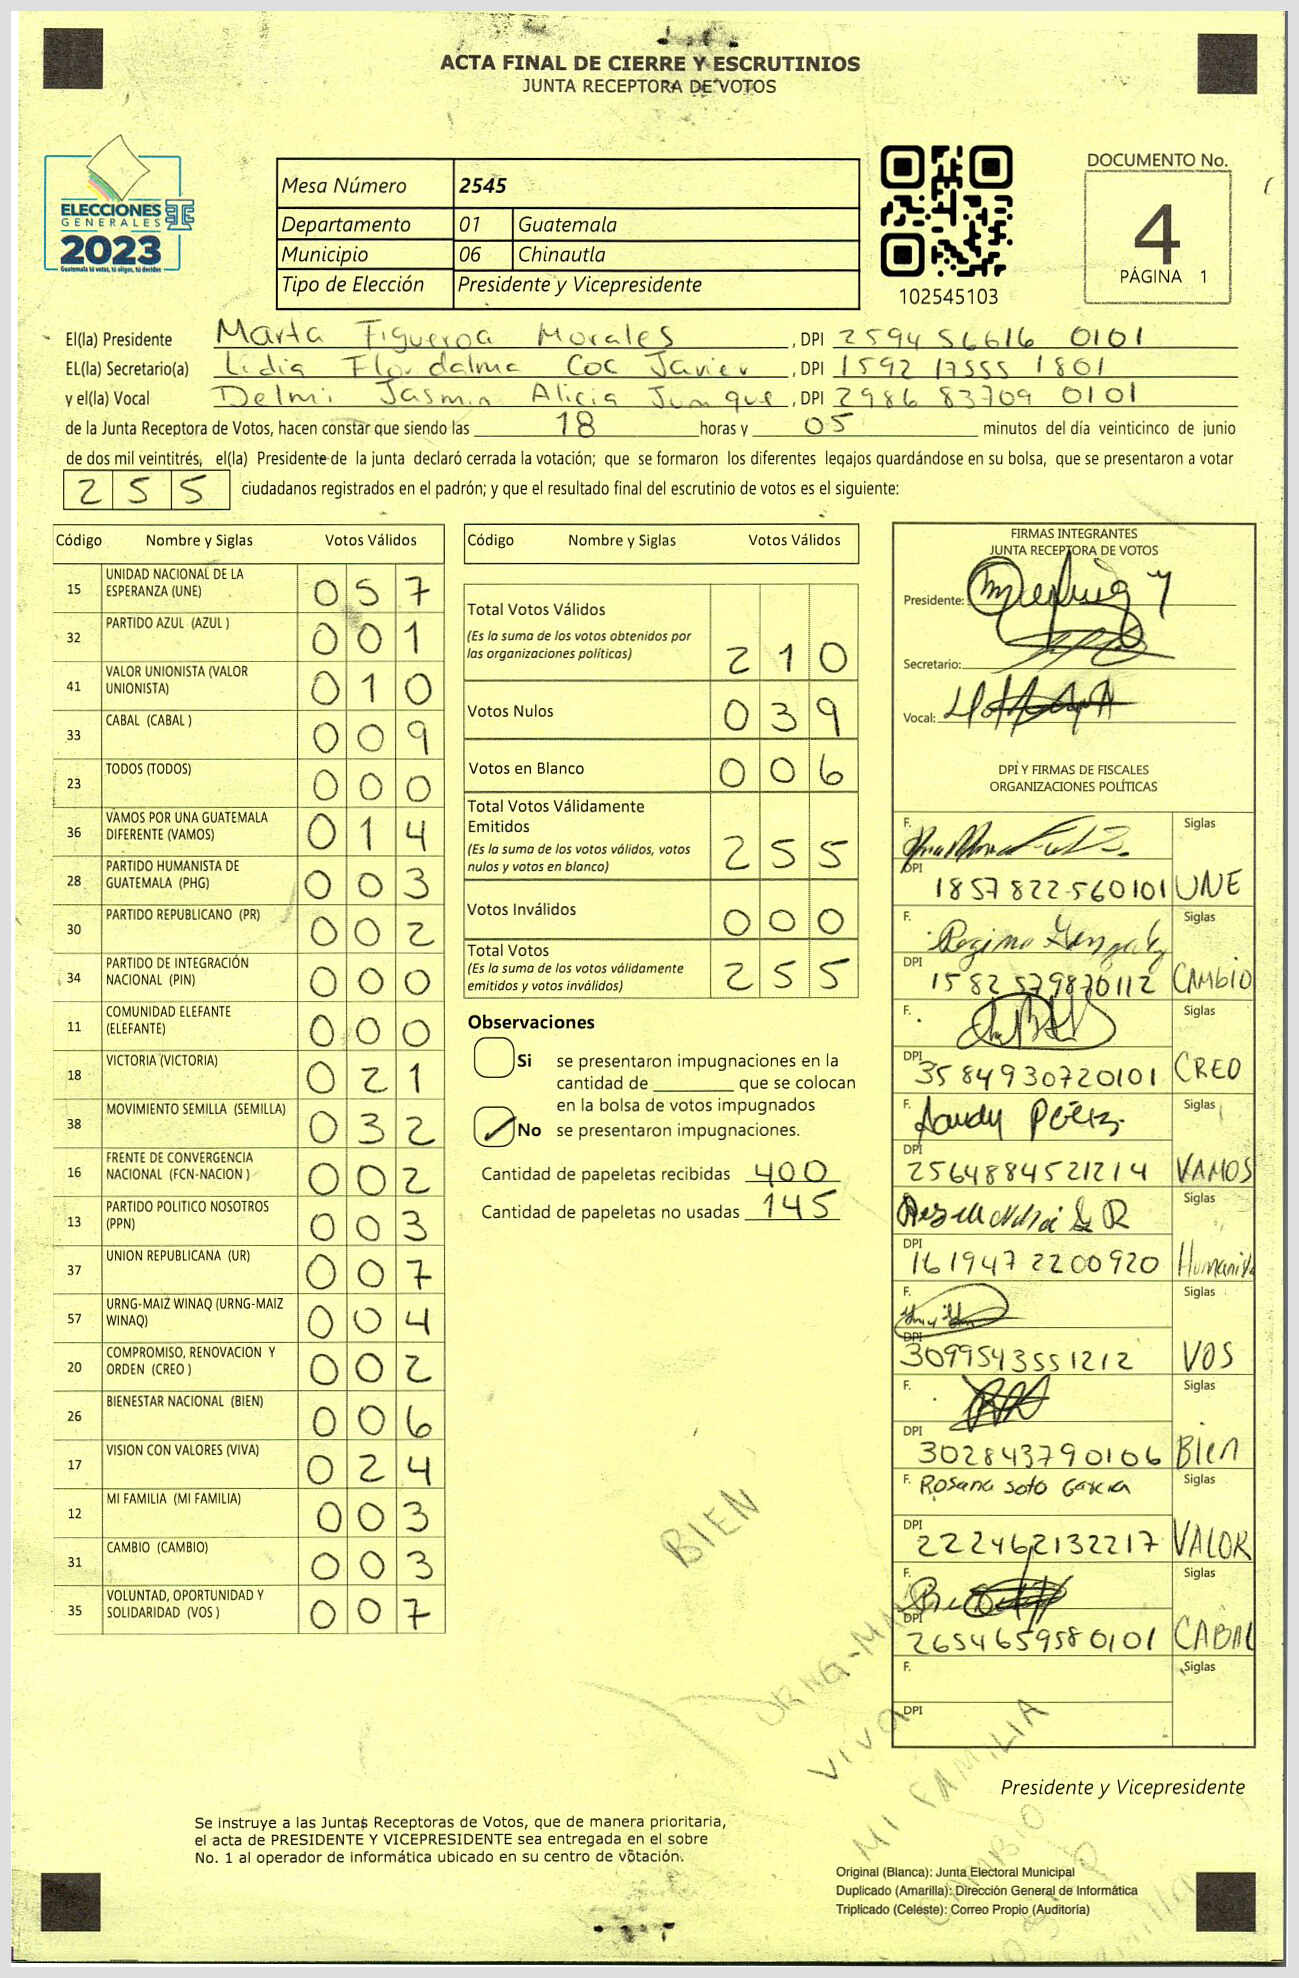 ACTA FINAL DE CIERRE Y ESCRUTINIOS
JUNTA RECEPTORA DE VOTOS
ELECCIONES
GENERALES
2023
Guatemala tú votas, tú eliges, tú decides
Mesa Número 2545
Departamento 01 Guatemala
Municipio 06 Chinautla
Tipo de Elección Presidente y Vicepresidente
102545103
DOCUMENTO No.
4
PÁGINA 1
El(la) Presidente Marta Figueroa Morales, DPI 2594 56616 0101
EL(la) Secretario(a) Lidia Flordalma Coc Javier, DPI 1592 17555 1801
y el(la) Vocal Delmi Jasmin Alicia, DPI 2986 83709 0101
de la Junta Receptora de Votos, hacen constar que siendo las 18 horas y 05 minutos del día veinticinco de junio
de dos mil veintitrés, el(la) Presidente de la junta declaró cerrada la votación; que se formaron los diferentes legajos guardándose en su bolsa, que se presentaron a votar
255 ciudadanos registrados en el padrón; y que el resultado final del escrutinio de votos es el siguiente:
Código Nombre y Siglas Votos Válidos
15 UNIDAD NACIONAL DE LA ESPERANZA (UNE) 057
32 PARTIDO AZUL (AZUL ) 001
41 VALOR UNIONISTA (VALOR UNIONISTA) 010
33 CABAL (CABAL ) 009
23 TODOS (TODOS) 000
36 VAMOS POR UNA GUATEMALA DIFERENTE (VAMOS) 014
28 PARTIDO HUMANISTA DE GUATEMALA (PHG) 003
30 PARTIDO REPUBLICANO (PR) 002
34 PARTIDO DE INTEGRACIÓN NACIONAL (PIN) 000
11 COMUNIDAD ELEFANTE (ELEFANTE) 000
18 VICTORIA (VICTORIA) 021
38 MOVIMIENTO SEMILLA (SEMILLA) 032
16 FRENTE DE CONVERGENCIA NACIONAL (FCN-NACION ) 002
13 PARTIDO POLITICO NOSOTROS (PPN) 003
37 UNION REPUBLICANA (UR) 007
57 URNG-MAIZ WINAQ (URNG-MAIZ WINAQ) 004
20 COMPROMISO, RENOVACION Y ORDEN (CREO ) 002
26 BIENESTAR NACIONAL (BIEN) 006
17 VISION CON VALORES (VIVA) 024
12 MI FAMILIA (MI FAMILIA) 003
31 CAMBIO (CAMBIO) 003
35 VOLUNTAD, OPORTUNIDAD Y SOLIDARIDAD (VOS ) 007
Código Nombre y Siglas Votos Válidos
Total Votos Válidos 210
(Es la suma de los votos obtenidos por
las organizaciones políticas)
Votos Nulos 039
Votos en Blanco 006
Total Votos Válidamente
Emitidos 255
(Es la suma de los votos válidos, votos
nulos y votos en blanco)
Votos Inválidos 000
Total Votos 255
(Es la suma de los votos válidamente
emitidos y votos inválidos)
Observaciones
Si se presentaron impugnaciones en la
cantidad de que se colocan
en la bolsa de votos impugnados
No se presentaron impugnaciones.
Cantidad de papeletas recibidas 400
Cantidad de papeletas no usadas 145
FIRMAS INTEGRANTES
JUNTA RECEPTORA DE VOTOS
Presidente:
Secretario:
Vocal:
DPI Y FIRMAS DE FISCALES
ORGANIZACIONES POLÍTICAS
F. Siglas
DPI 1857 822560101 UNE
F. Siglas
DPI 1582579870112 CAMBIO
F. Siglas
DPI 3584930720101 CREO
F. Sandy Pérez Siglas
DPI 2564884521214 VAMOS
F. Siglas
DPI 161947 2200920 Humanista
F. Siglas
DPI 3099543551212 VOS
F. Siglas
DPI 302843790106 Bien
F. Rosana Soto Garcia Siglas
DPI 222462132217 VALOR
F. Siglas
DPI 2654659580101 CABAL
F. Siglas
DPI
BIEN
URNG-MAIZ
VIVA
MI FAMILIA
CAMBIO
Presidente y Vicepresidente
Se instruye a las Juntas Receptoras de Votos, que de manera prioritaria,
el acta de PRESIDENTE Y VICEPRESIDENTE sea entregada en el sobre
No. 1 al operador de informática ubicado en su centro de votación.
Original (Blanca): Junta Electoral Municipal
Duplicado (Amarilla): Dirección General de Informática
Triplicado (Celeste): Correo Propio (Auditoría)